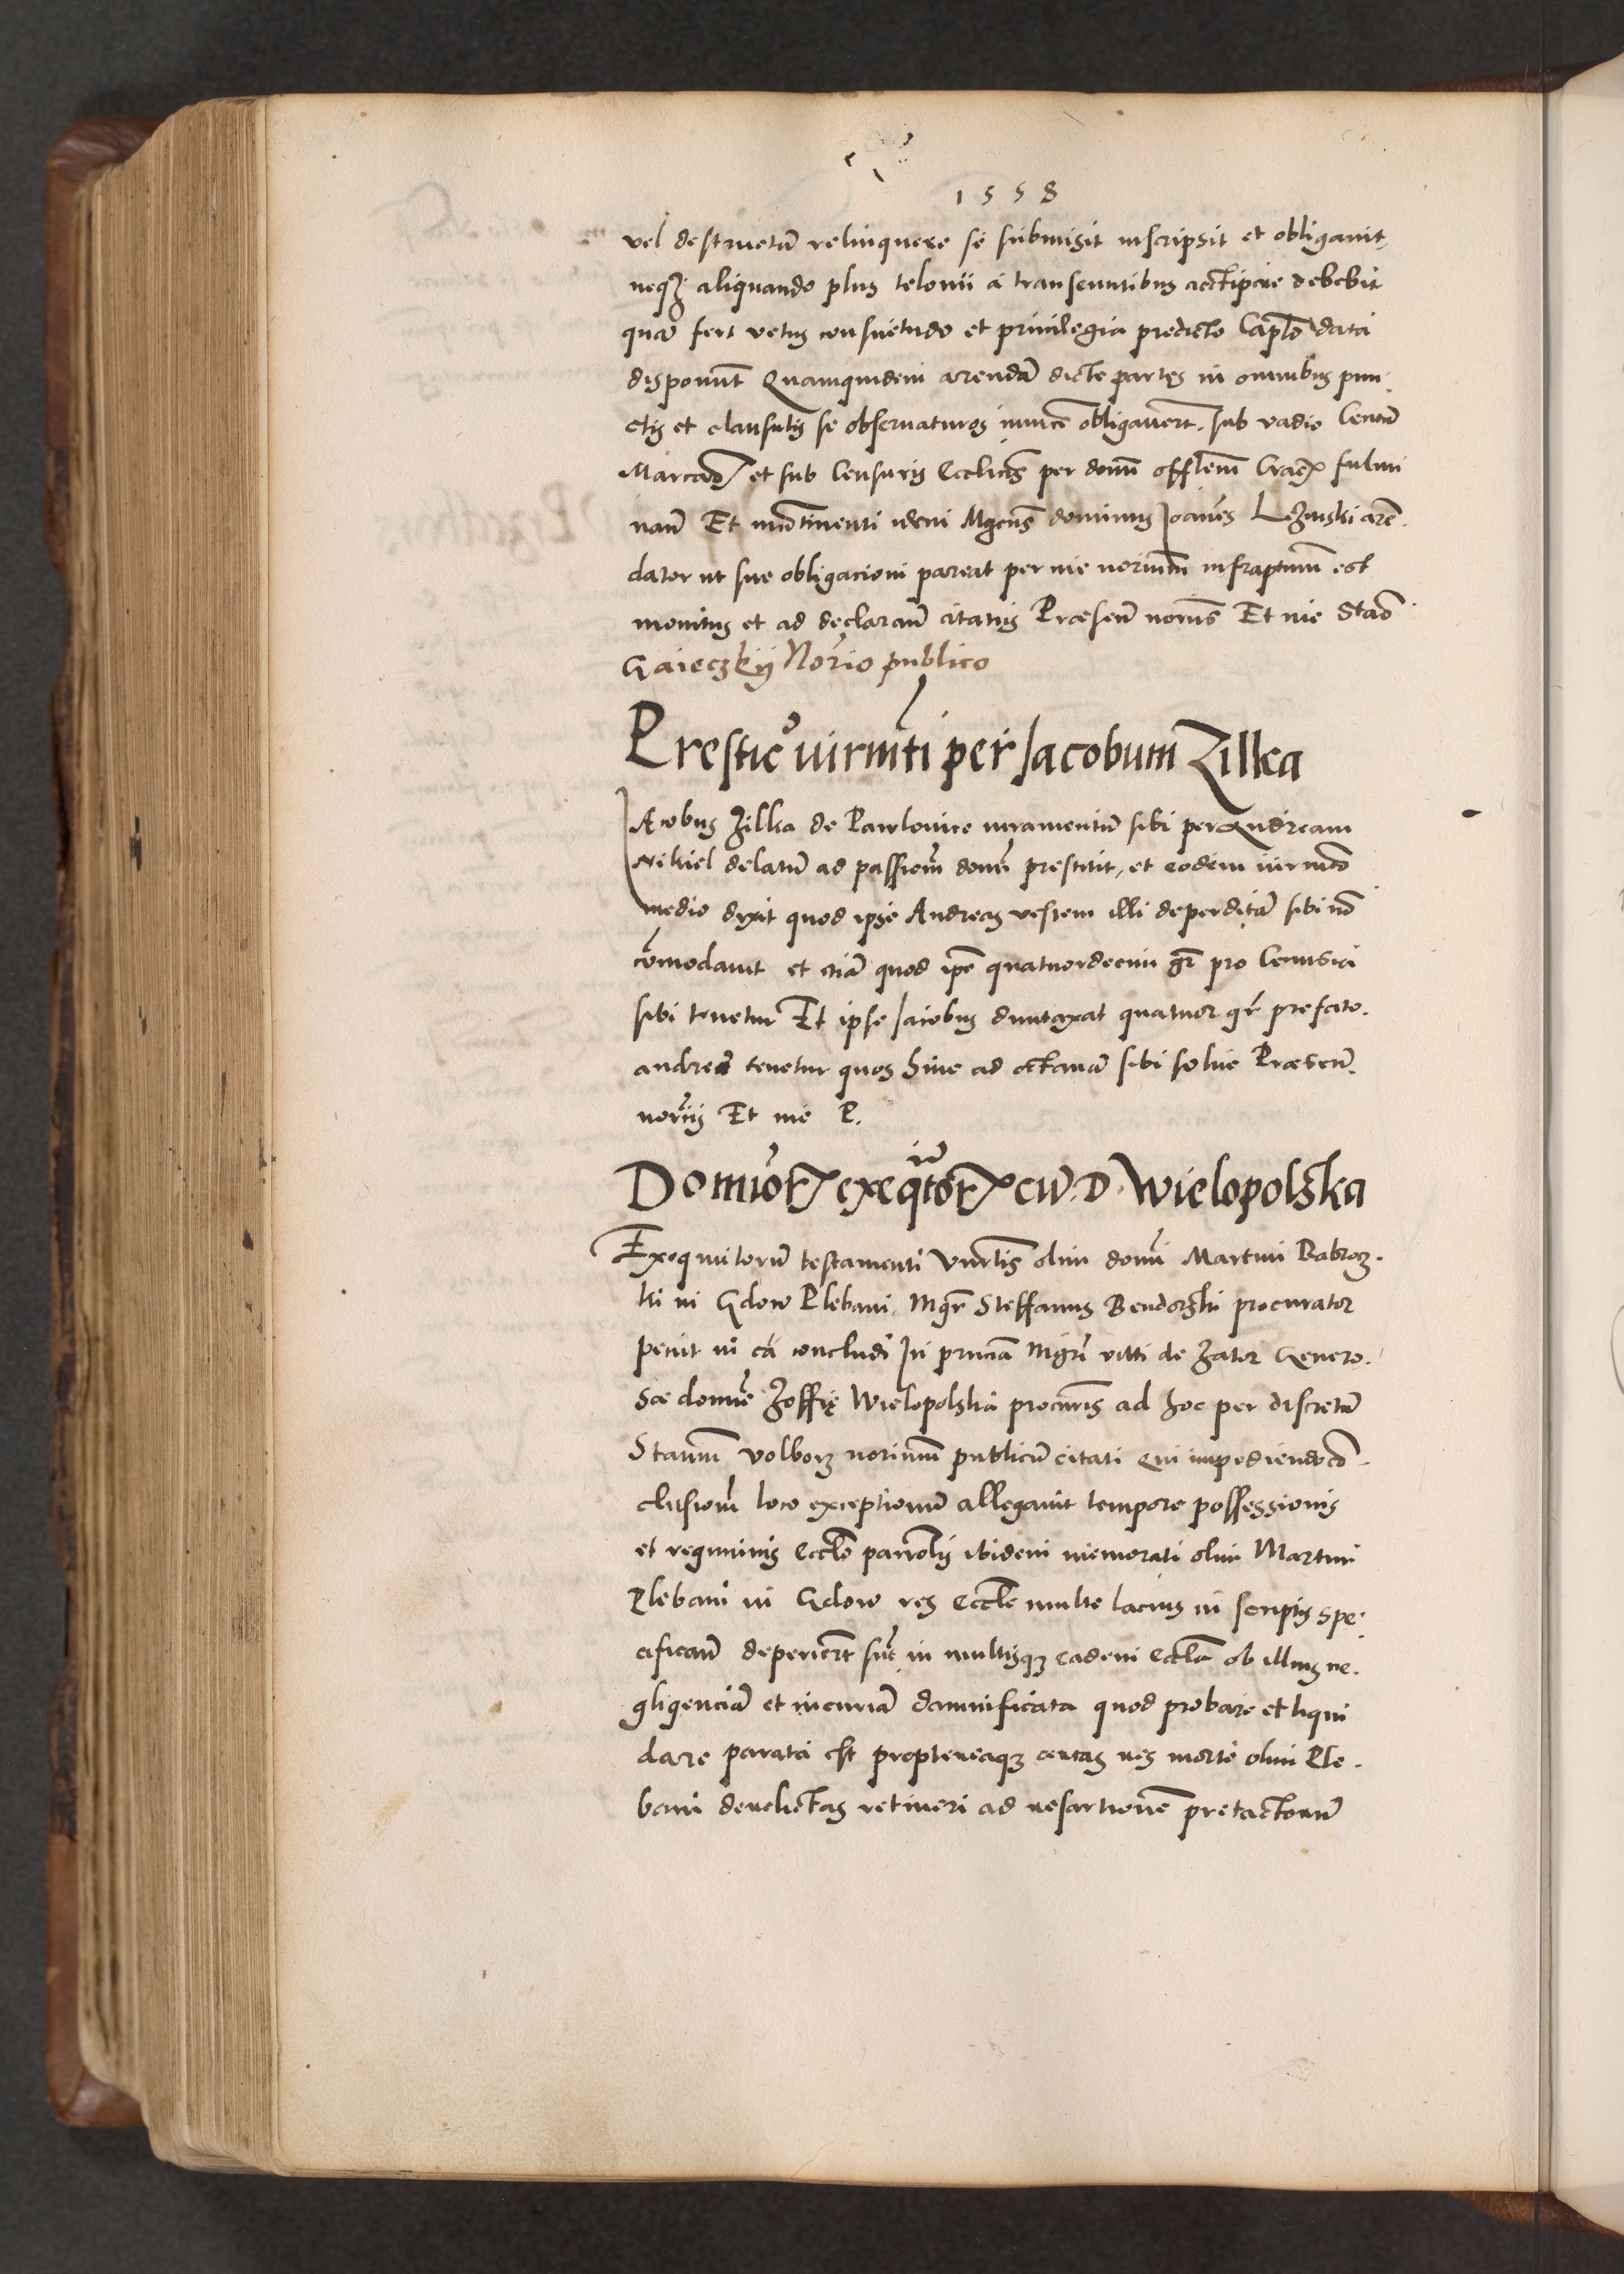 1558
vel destructũ relinquere se submisit inscripsit et obligauit,
neqꝫ aliquando plus telonii a transeuntibus acctipere debebit
quã fert vetus consuetudo et priuilegia predicto Caplo data
disponũt Quamquidem arendã dicte partes in omnibus pun
ctis et clausulis se obseruaturos inuicẽ obligauerт. sub vadio Centũ
Marcarꝝ et sub Censuris Ecclicis per domĩ offlem Craceñ fulmi
nan̄ Et incõtinenti idem Mgcus dominus Joannes aren̄.
dator ut sue obligacioni pareat per me norium infrapturm est
monitus et ad declaran̄ citatus Præsen̄ noriis Et me Stao
Gaieczkij Norio publico
Prestic̃ iurm̃ti per Jacobum Zilka
Jacobus Zilka de Pawlouice iuramentũ sibi per Andream
Nikiel delatũ ad passiom̃ domĩ prestitit, et eodem iurm̃to
medio dixit quod ipse Andreas vestem illi deperditã sibi nõ
cõmodauit et etiã quod ipẽ quatuordecim gr̃ pro
sibi tenetur Et ipse Jacobus duntaxat quatuor gr̃ prefato.
andreæ tenetur quos hinc ad octauã sibi soluet Præsen̄.
noriis Et me P.
Dominorꝝ exequutorꝝ cũ. D. Wielopolska
Exequutorũ testamenti Vnrlis olim domĩ Martini Babroz.
ki in Gdow Plebani. Mgr̃ Steffanus Bendorski procurator
petiit in cã concludi In prnciã Mgri vitti de Zator Genero.
sæ domĩe Zoffię Wielopolska procuris ad hoc per discretũ
Staum̃ Volborz norium̃ publicũ citati Qui impediendo cõ.
clusiom̃ loco exceptionũ allegauit tempore possessionis
et regiminis Eccle parrolis ibidem memorati olim Martini
Plebani in Gdow res Eccle multe lacius in scriptis spe.
cifican̄ deperierт sũt in multisqꝫ eadem Eccla ob illius ne.
gligenciã et incuriã damnificata quod probare et liqui
dare parata est proptereaqꝫ certas res morte olim Ple.
bani derelictas retineri ad resartionẽ pretactorũ